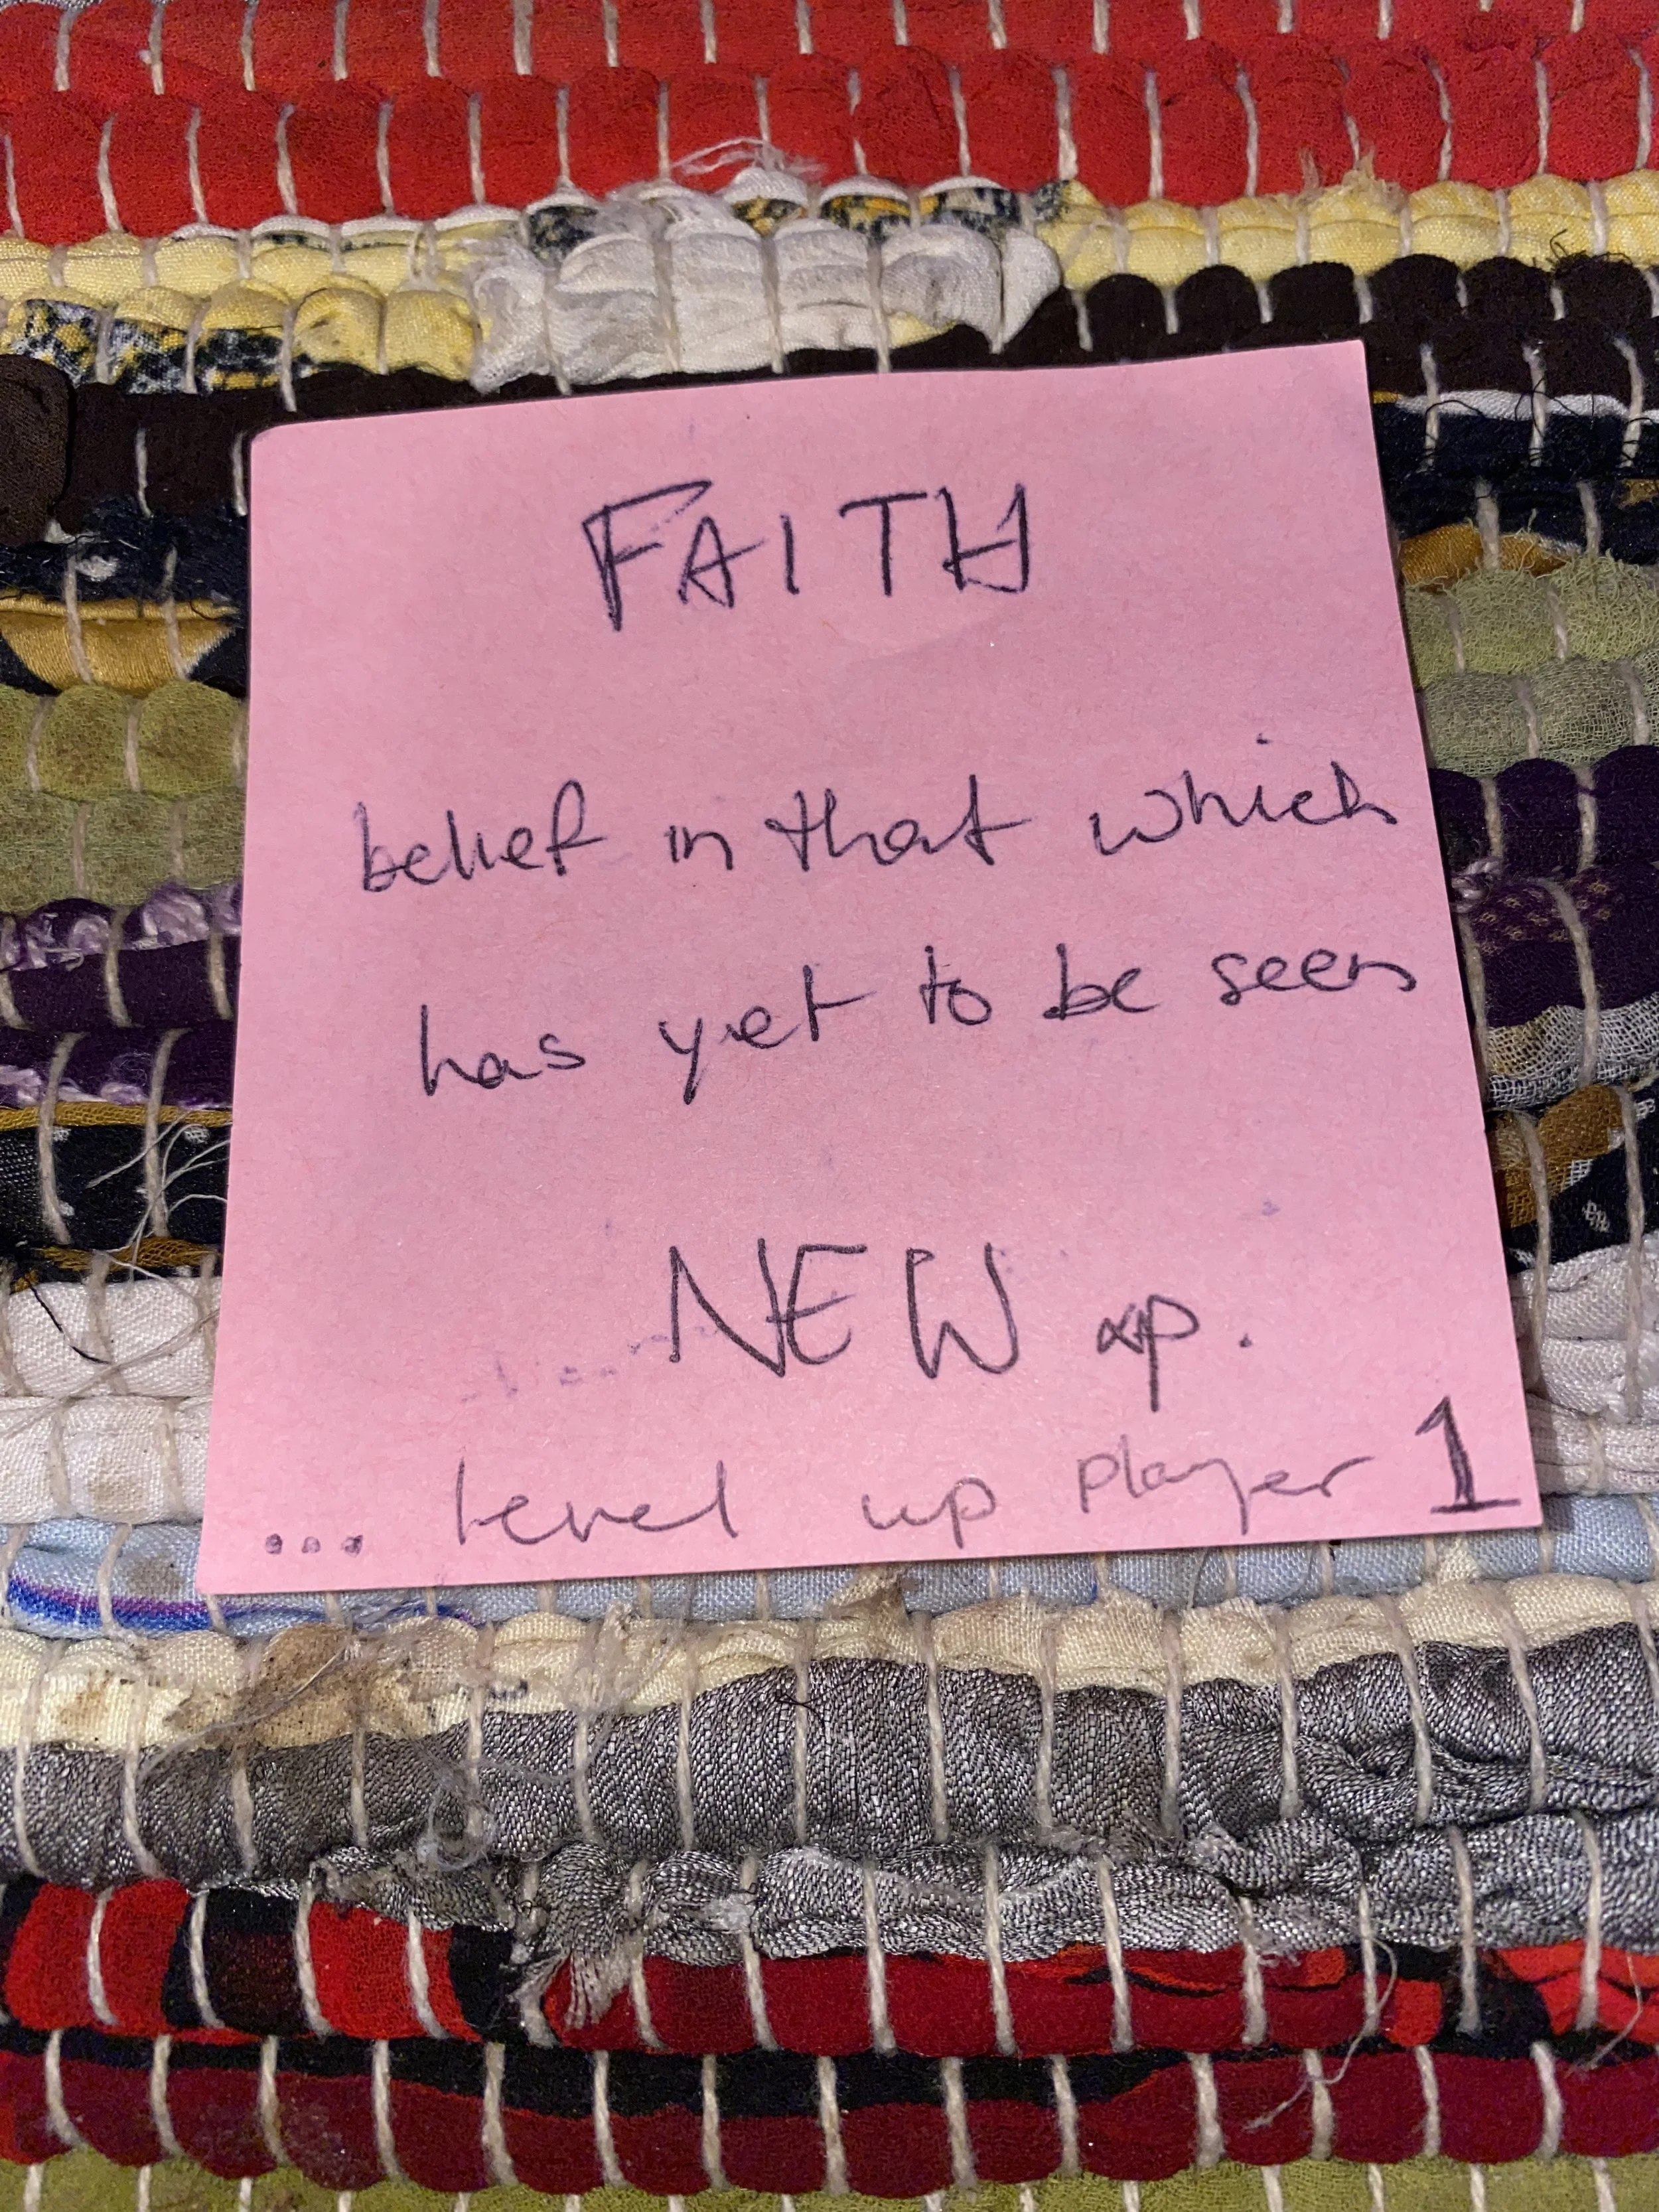 FAITH
belief in that which
has yet to be seen
NEW xp.
... level up player 1